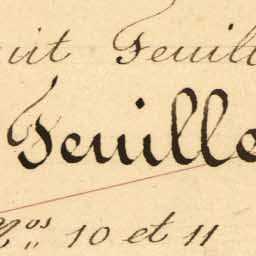 uit Feuill
Feuille
Nos 10 et 11